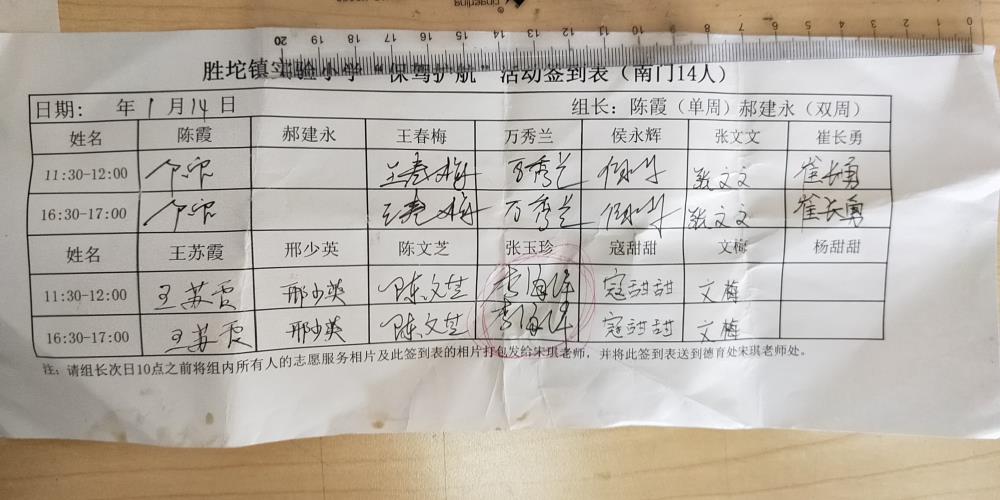 20 19 18 17 16 15 14 13 12 11 10 9 8 7 6 5 4 3 2 1 0
胜坨镇实验小学“保驾护航”活动签到表（南门14人）
日期： 年 1 月 14 日 组长：陈霞（单周）郝建永（双周）
姓名 陈霞 郝建永 王春梅 万秀兰 侯永辉 张文文 崔长勇
11:30-12:00 王春梅 万秀兰 张文文 崔长勇
16:30-17:00 王春梅 万秀兰 张文文 崔长勇
姓名 王苏霞 邢少英 陈文芝 张玉珍 寇甜甜 文梅 杨甜甜
11:30-12:00 王苏霞 邢少英 陈文芝 寇甜甜 文梅
16:30-17:00 王苏霞 邢少英 陈文芝 寇甜甜 文梅
注：请组长次日10点之前将组内所有人的志愿服务相片及此签到表的相片打包发给宋琪老师，并将此签到表送到德育处宋琪老师处。